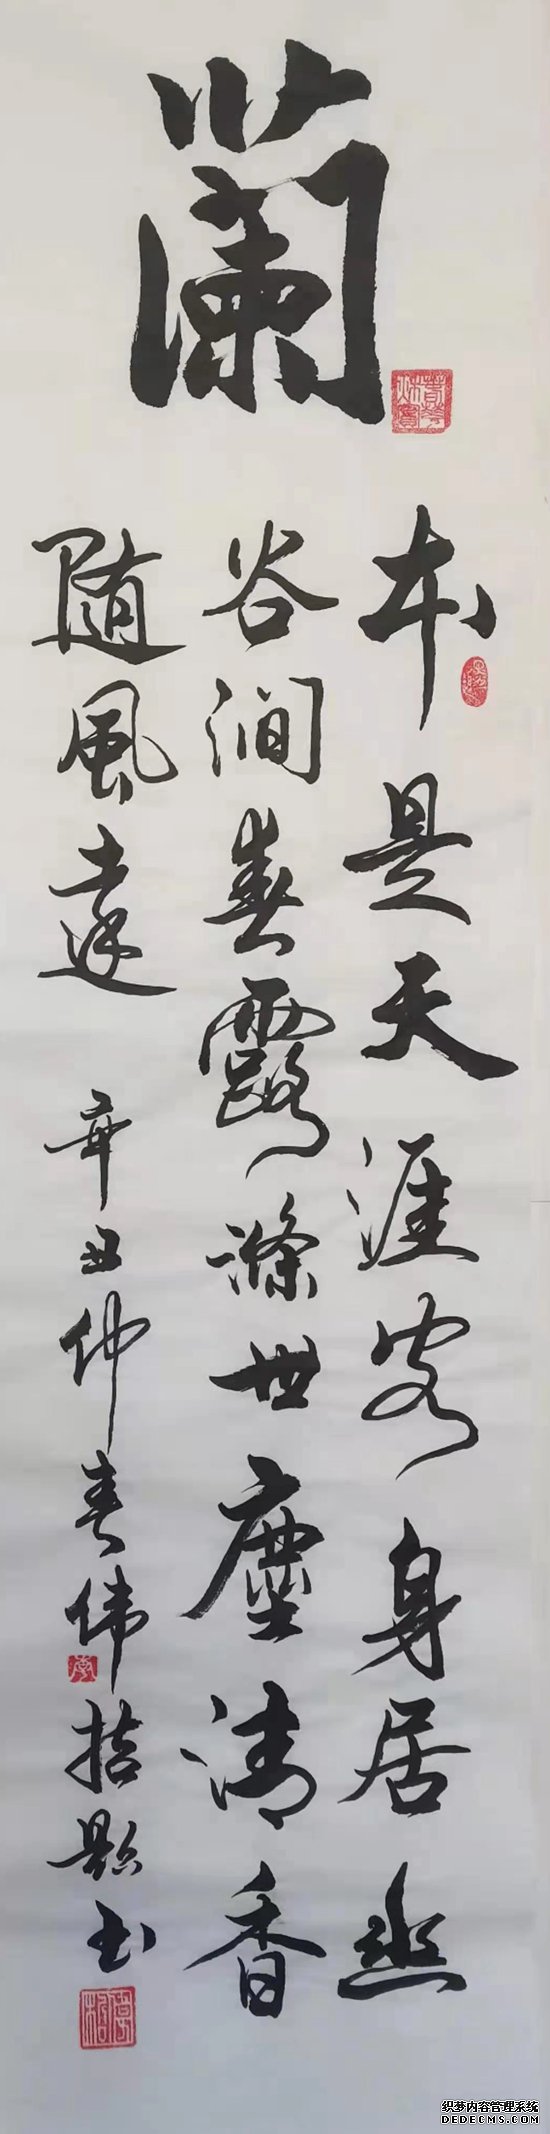 蘭
本是天涯客身居幽
谷澗春露滌世塵清香
隨風遠 辛丑仲春伟題书
织梦内容管理系统
DEDECMS.COM